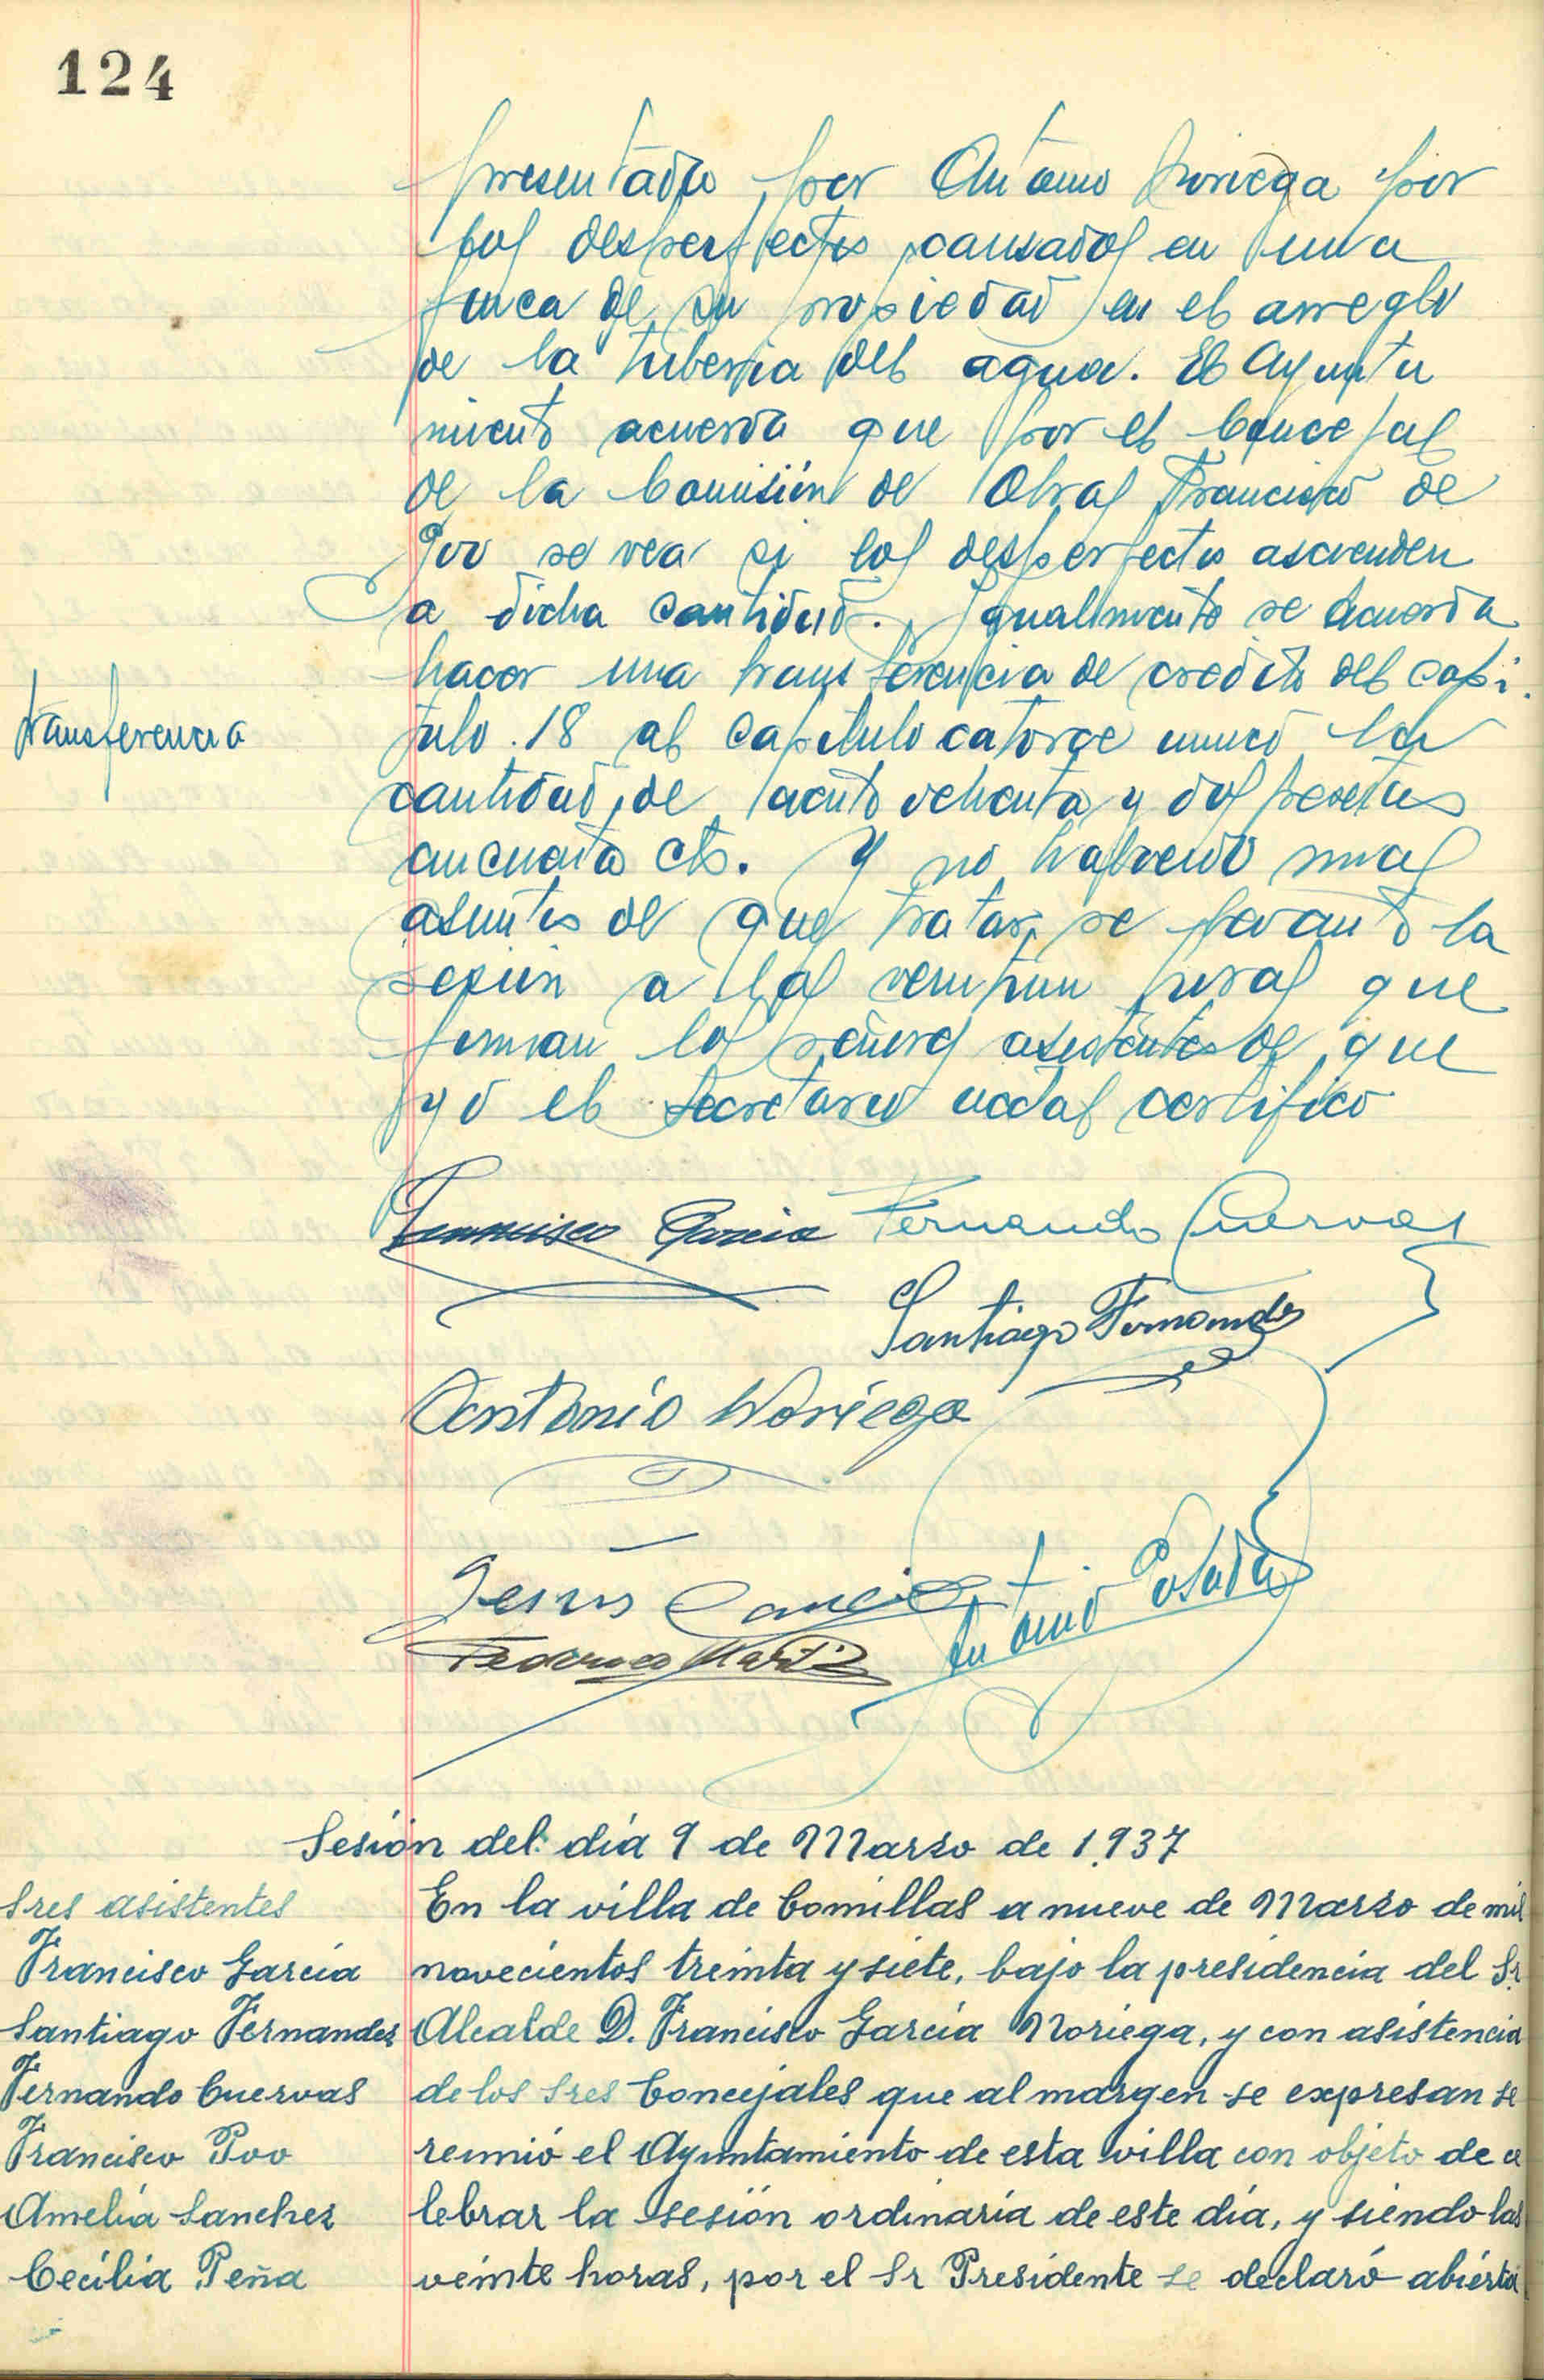 124
presentada por Antonio Noriega por
los desperfectos causados en una
finca de su propiedad en el arreglo
de la tuberia del agua. El Ayunta
miento acuerda que por el Concejal
de la Comisión de Obras Francisco de
Poo se vea si los desperfectos ascienden
a dicha cantidad. Igualmente se acuerda
hacer una transferencia de credito del capi
Transferencia
tulo 18 al capitulo catorce unico la
cantidad de ciento ochenta y dos pesetas
cincuenta cts. Y no habiendo mas
asuntos de que tratar, se levantó la
sesión a las veintiun horas que
firman los señores asistentes de que
yo el Secretario certifico
Francisco Garcia Fernando Cuervas
Santiago Fernandez
Antonio Noriega
Jesus Cancio
Antonio Posada
Federico Martiz
Sesión del día 9 de Marzo de 1.937
Sres asistentes
Francisco García
Santiago Fernandez
Fernando Cuervas
Francisco Poo
Amelia Sanchez
Cecilia Peña
En la villa de Comillas a nueve de Marzo de mil
novecientos treinta y siete, bajo la presidencia del Sr.
Alcalde D. Francisco García Noriega, y con asistencia
de los Sres Concejales que al margen se expresan se
reunió el Ayuntamiento de esta villa con objeto de ce
lebrar la sesión ordinaria de este día, y siendo las
veinte horas, por el Sr Presidente se declaró abierta